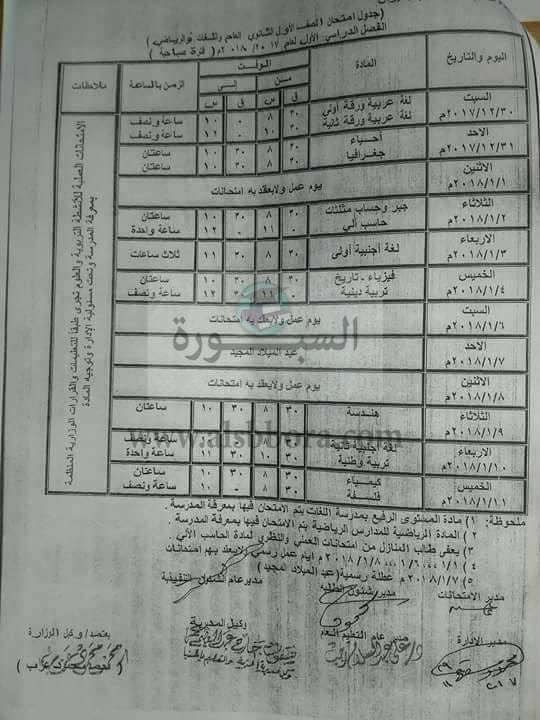 (جدول امتحان الصف الأول الثانوي العام واللغات والرياضي)
الفصل الدراسي الأول لعام ٢٠١٧/٢٠١٨م ( فترة صباحية )
اليوم والتاريخ المادة الوقت الزمن بالساعة ملاحظات
من إلى
ق س ق س
السبت ٢٠١٧/١٢/٣٠م
لغة عربية ورقة أولى ٣٠ ٨ ٠ ١٠ ساعة ونصف
لغة عربية ورقة ثانية ٣٠ ١٠ ٠ ١٢ ساعة ونصف
الاحد ٢٠١٧/١٢/٣١م
أحياء ٣٠ ٨ ٣٠ ١٠ ساعتان
جغرافيا ٣٠ ٨ ٣٠ ١٠ ساعتان
الاثنين ٢٠١٨/١/١م
يوم عمل ولايعقد به امتحانات
الثلاثاء ٢٠١٨/١/٢م
جبر وحساب مثلثات ٣٠ ٨ ٣٠ ١٠ ساعتان
حاسب آلي ٠ ١١ ٠ ١٢ ساعة واحدة
الاربعاء ٢٠١٨/١/٣م
لغة أجنبية أولى ٣٠ ٨ ٣٠ ١١ ثلاث ساعات
الخميس ٢٠١٨/١/٤م
فيزياء - تاريخ ٣٠ ٨ ٣٠ ١٠ ساعتان
تربية دينية ١١ ٣٠ ١٢ ساعة ونصف
السبت ٢٠١٨/١/٦م
يوم عمل ولايعقد به امتحانات
الاحد ٢٠١٨/١/٧م
عيد الميلاد المجيد
الاثنين ٢٠١٨/١/٨م
يوم عمل ولايعقد به امتحانات
الثلاثاء ٢٠١٨/١/٩م
هندسة ٣٠ ٨ ٣٠ ١٠ ساعتان
الاربعاء ٢٠١٨/١/١٠م
لغة أجنبية ثانية ٣٠ ٨ ١٠ ساعة ونصف
تربية وطنية ٣٠ ١٠ ٣٠ ١١ ساعة واحدة
الخميس ٢٠١٨/١/١١م
كيمياء ٣٠ ٨ ٣٠ ١٠ ساعتان
فلسفة ٣٠ ٨ ١٠ ساعة ونصف
الامتحانات العملية للأنشطة التربوية والعلوم تجرى طبقا للتعليمات والقرارات الوزارية المنظمة
بمعرفة المدرسة وتحت مسئولية الإدارة وتوجيه المادة
السبورة
www.alsbbora.com
ملحوظة: ١) مادة المستوى الرفيع بمدرسة اللغات يتم الامتحان فيها بمعرفة المدرسة .
٢) المادة الرياضية للمدارس الرياضية يتم الامتحان فيها بمعرفة المدرسة .
٣) يعفى طلاب المنازل من امتحانات العملي والنظري لمادة الحاسب الآلي .
٤) ١/١ ، ١/٦ ، ٢٠١٨/١/٨م ايام عمل رسمى ولايعقد بهم امتحانات
٥) ٢٠١٨/١/٧م عطلة رسمية (عيد الميلاد المجيد )
مدير الامتحانات مدير شئون الطلبة مدير عام الشئون التنفيذية
مدير الادارة مدير عام التعليم العام وكيل المديرية يعتمد/ وكيل الوزارة